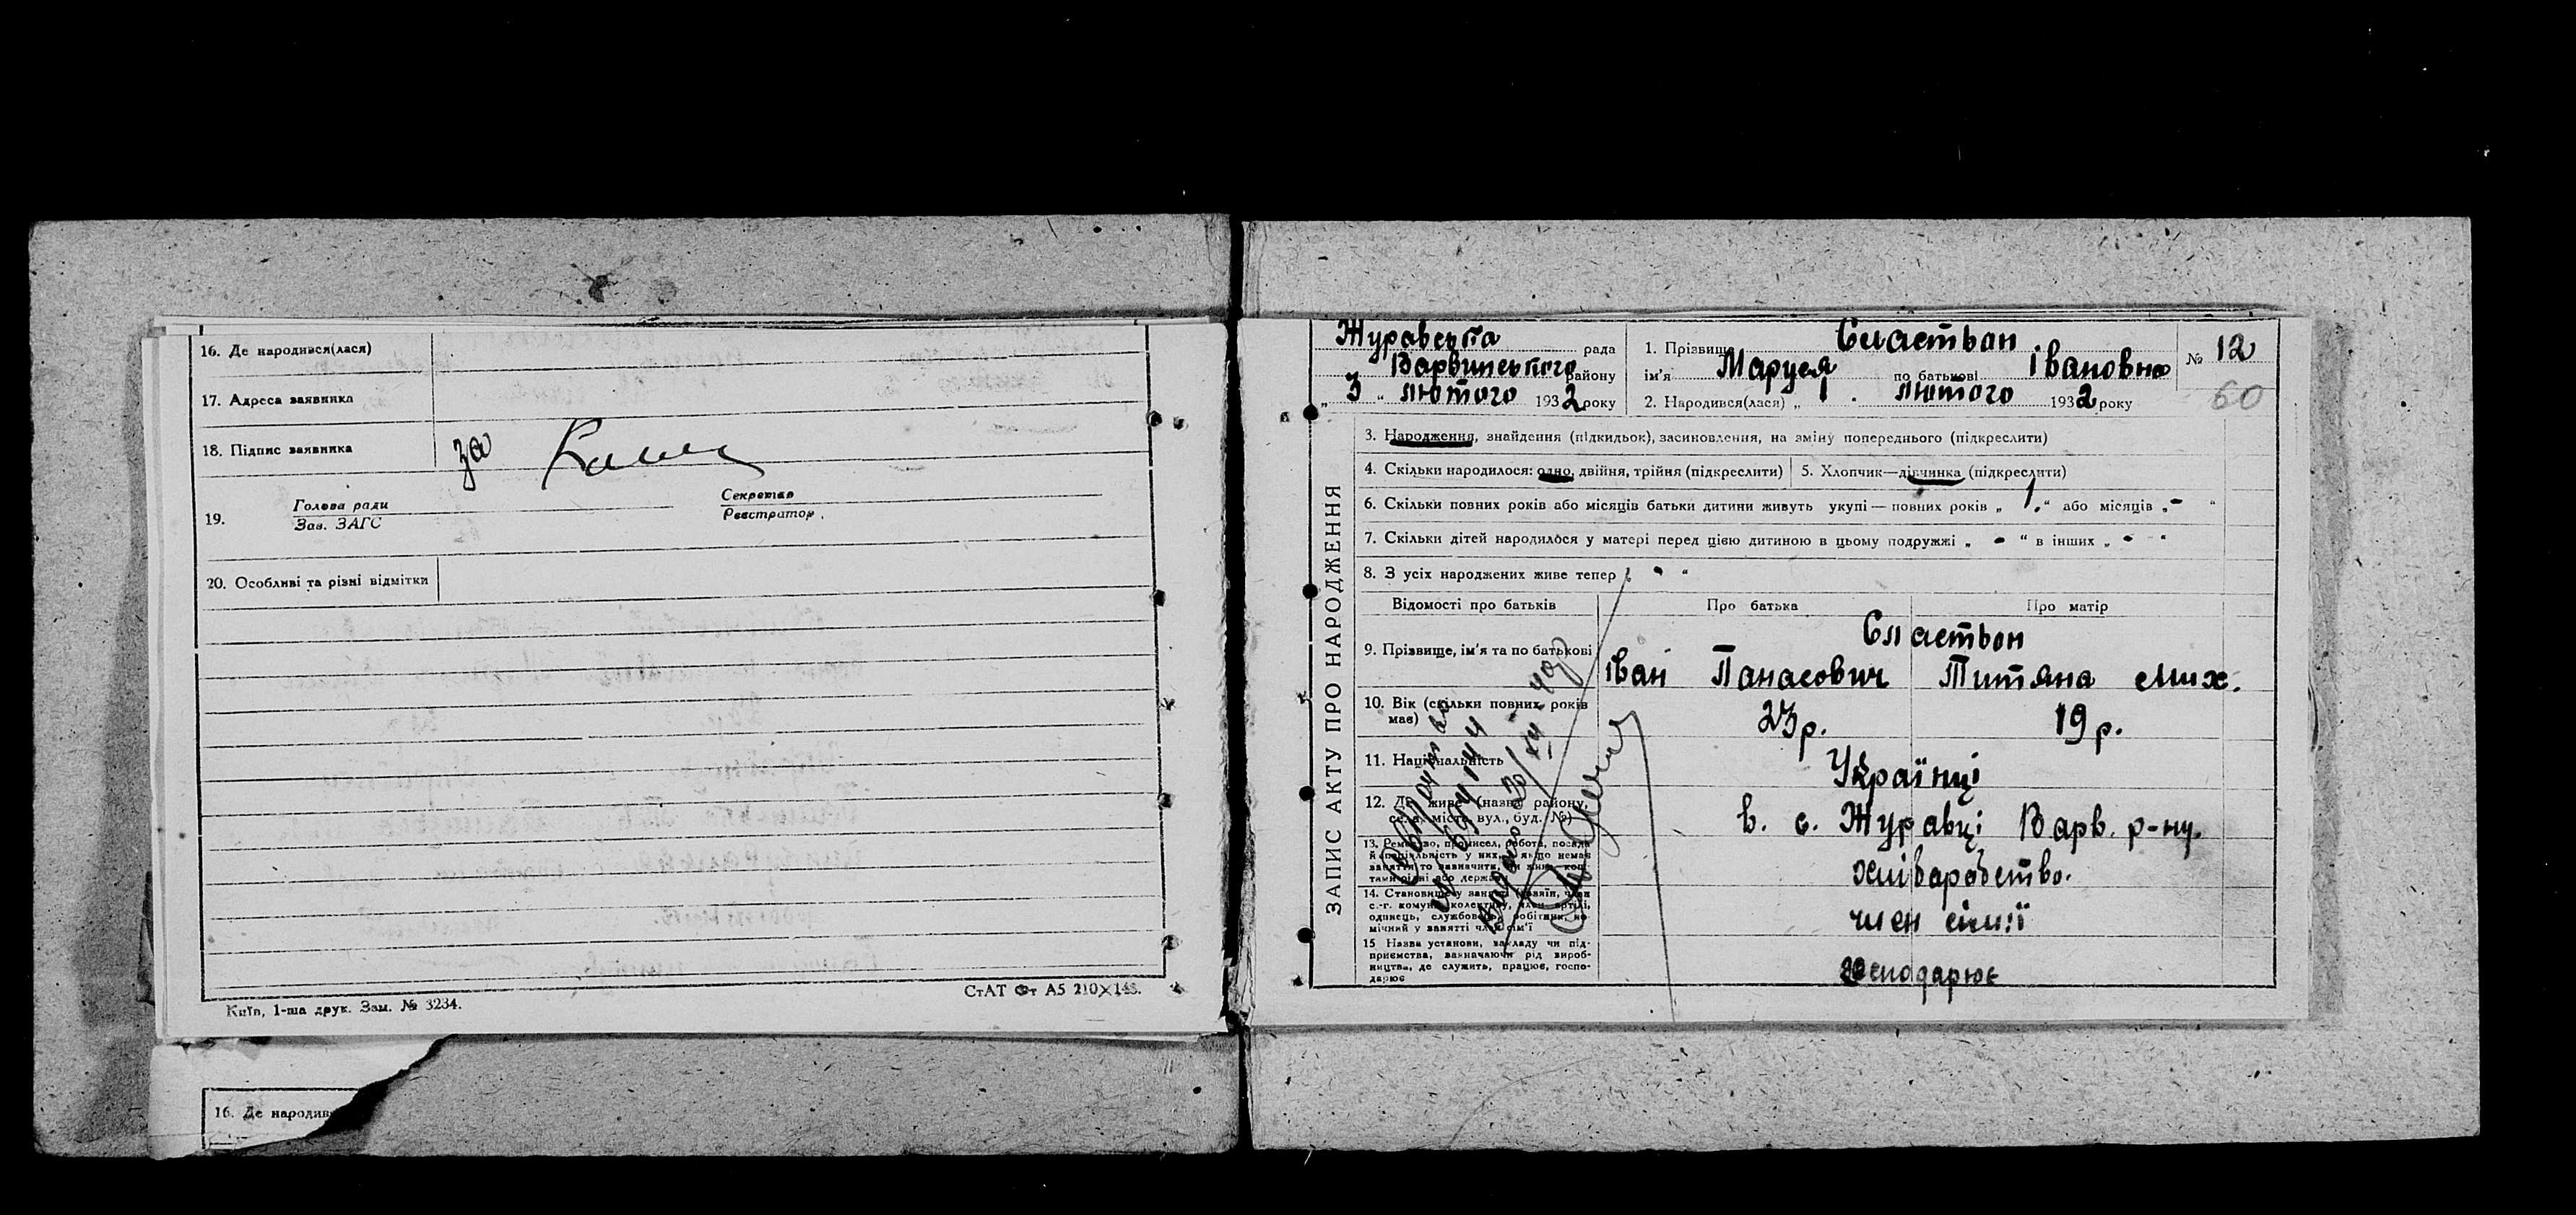 16. Де народився(лася)
17. Адреса заявника
18. Підпис заявника за
19. Голова ради Секретар
Зав. ЗАГС Реєстратор
20. Особливі та різні відмітки
Київ, 1-ша друк. Зам. № 3234.
СтАТ Фт А5 210×148.
16. Де народив
ЗАПИС АКТУ ПРО НАРОДЖЕННЯ
Журавська рада
Варвинського району
„ 3 „ лютого 1932 року
1. Прізвище Сластьон
ім'я Маруся по батькові Івановна
2. Народився(лася) „ 1 . лютого 1932 року
№ 12
60
3. Народження, знайдення (підкидьок), засиновлення, на зміну попереднього (підкреслити)
4. Скільки народилося: одно, двійня, трійня (підкреслити) 5. Хлопчик—дівчинка (підкреслити)
6. Скільки повних років або місяців батьки дитини живуть укупі — повних років „ 1. “ або місяців „ - “
7. Скільки дітей народилося у матері перед цією дитиною в цьому подружжі „ - “ в інших „ - “
8. З усіх народжених живе тепер „ - “
Відомості про батьків Про батька Про матір
Сластьон
9. Прізвище, ім'я та по батькові Іван Панасович Титяна Мих.
10. Вік (скільки повних років має) 23 р. 19 р.
11. Національність Українці
12. Де живе (назва району, села, міста, вул., буд. №) в. с. Журавці Варв. р-ну.
13. Ремество, промисел, робота, посада
хліборобство.
14. Становище у занятті
с.-г. комуни, колективу, член артілі,
одинець, службовець, робітник,
мічний у занятті член сім'ї
член сімії
15 Назва установи, закладу чи під-
приємства, зазначаючи рід вироб-
ництва, де служить, працює, госпо-
дарює
господарює